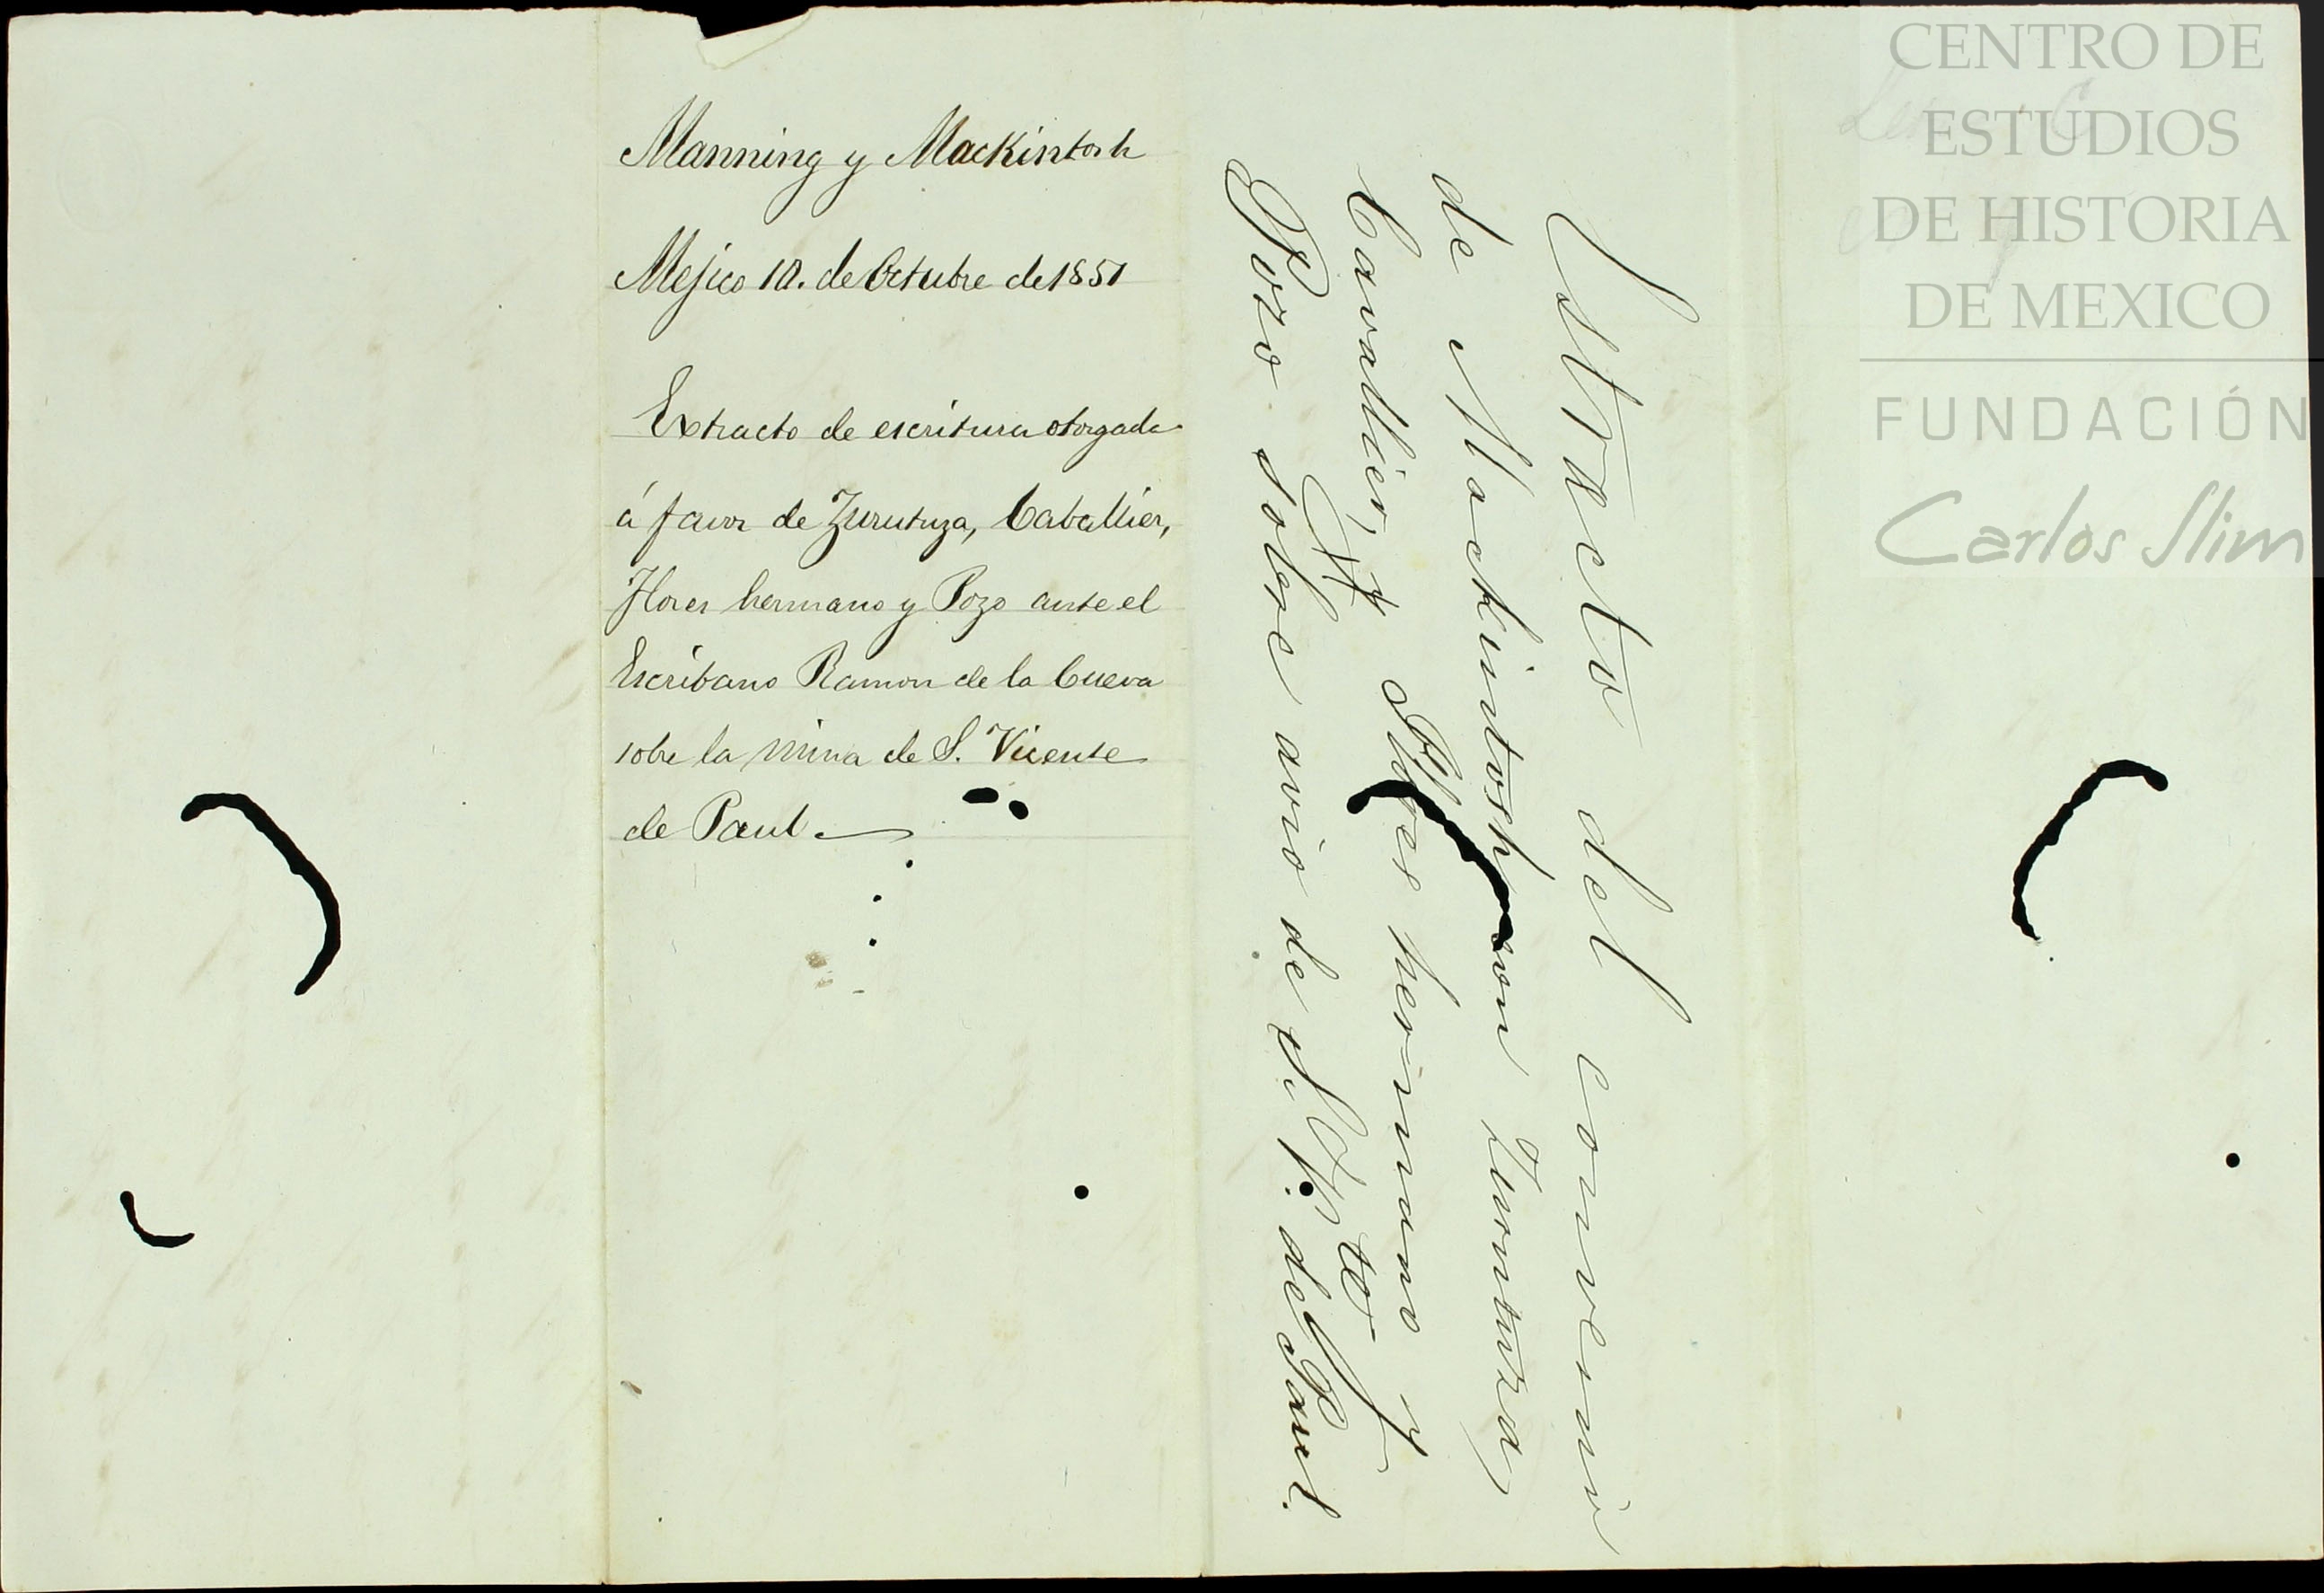 Manning y Mackintosh
Mejico 10. de Octubre de 1851
Extracto de escritura otorgada
á favor de Zurutuza, Caballier,
Flores hermano y Pozo ante el
Escribano Ramon de la Cueva
sobre la mina de S. Vicente
de Paul
Estracto del convenio
de Mackintosh con Zurutuza,
Cavallier, Flores hermano y
Pozo sobre avio de S. V. te de Paul.
CENTRO DE
ESTUDIOS
DE HISTORIA
DE MEXICO
FUNDACIÓN
Carlos Slim